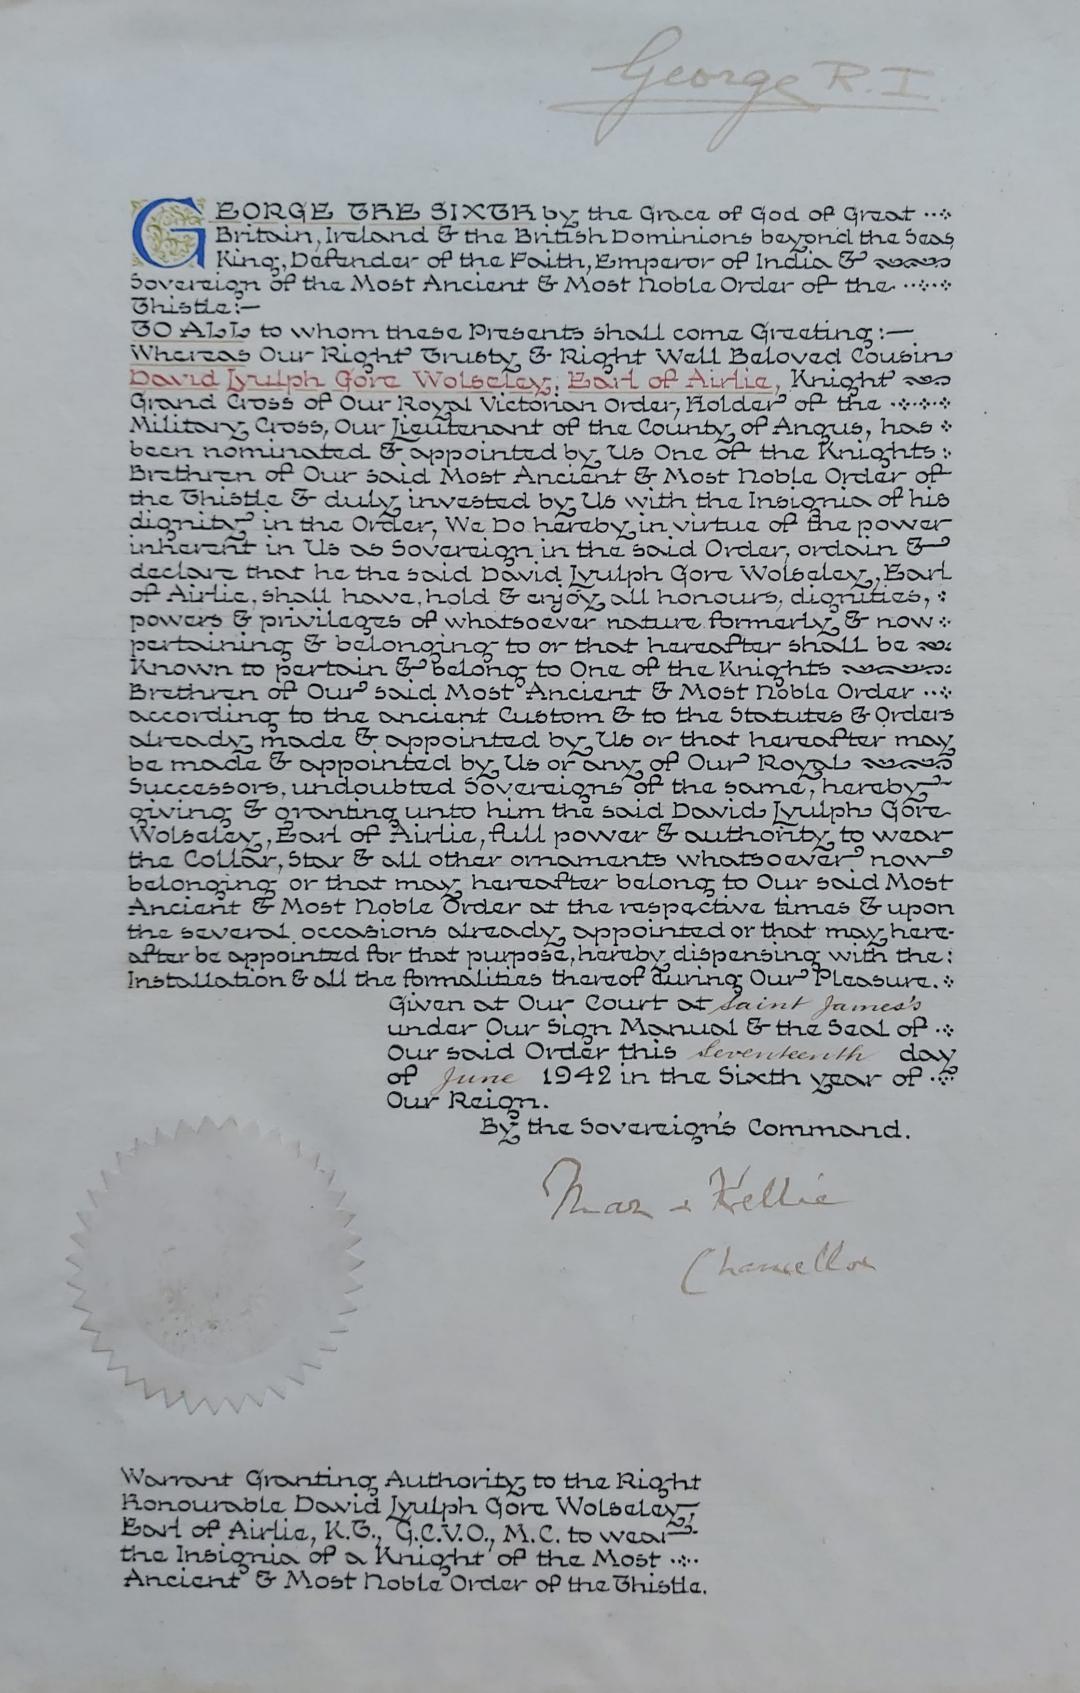 George R.I.
GEORGE THE SIXTH by the Grace of God of Great
Britain, Ireland & the British Dominions beyond the Seas
King, Defender of the Faith, Emperor of India &
Sovereign of the Most Ancient & Most Noble Order of the
Thistle:—
TO ALL to whom these Presents shall come Greeting:—
Whereas Our Right Trusty & Right Well Beloved Cousin
David Lyulph Gore Wolseley, Earl of Airlie, Knight
Grand Cross of Our Royal Victorian Order, Holder of the
Military Cross, Our Lieutenant of the County of Angus, has
been nominated & appointed by Us One of the Knights
Brethren of Our said Most Ancient & Most Noble Order of
the Thistle & duly invested by Us with the Insignia of his
dignity in the Order, We Do hereby in virtue of the power
inherent in Us as Sovereign in the said Order, ordain &
declare that he the said David Lyulph Gore Wolseley, Earl
of Airlie, shall have, hold & enjoy all honours, dignities,
powers & privileges of whatsoever nature formerly & now
pertaining & belonging to or that hereafter shall be
Known to pertain & belong to One of the Knights
Brethren of Our said Most Ancient & Most Noble Order
according to the ancient Custom & to the Statutes & Orders
already made & appointed by Us or that hereafter may
be made & appointed by Us or any of Our Royal
Successors, undoubted Sovereigns of the same, hereby
giving & granting unto him the said David Lyulph Gore
Wolseley, Earl of Airlie, full power & authority to wear
the Collar, Star & all other ornaments whatsoever now
belonging or that may hereafter belong to Our said Most
Ancient & Most Noble Order at the respective times & upon
the several occasions already appointed or that may here-
after be appointed for that purpose, hereby dispensing with the
Installation & all the formalities thereof during Our Pleasure.
Given at Our Court at Saint James's
under Our Sign Manual & the Seal of
Our said Order this Seventeenth day
of June 1942 in the Sixth year of
Our Reign.
By the Sovereign's Command.
Mar & Kellie
Chancellor
Warrant Granting Authority to the Right
Honourable David Lyulph Gore Wolseley,
Earl of Airlie, K.T., G.C.V.O., M.C. to wear
the Insignia of a Knight of the Most
Ancient & Most Noble Order of the Thistle.